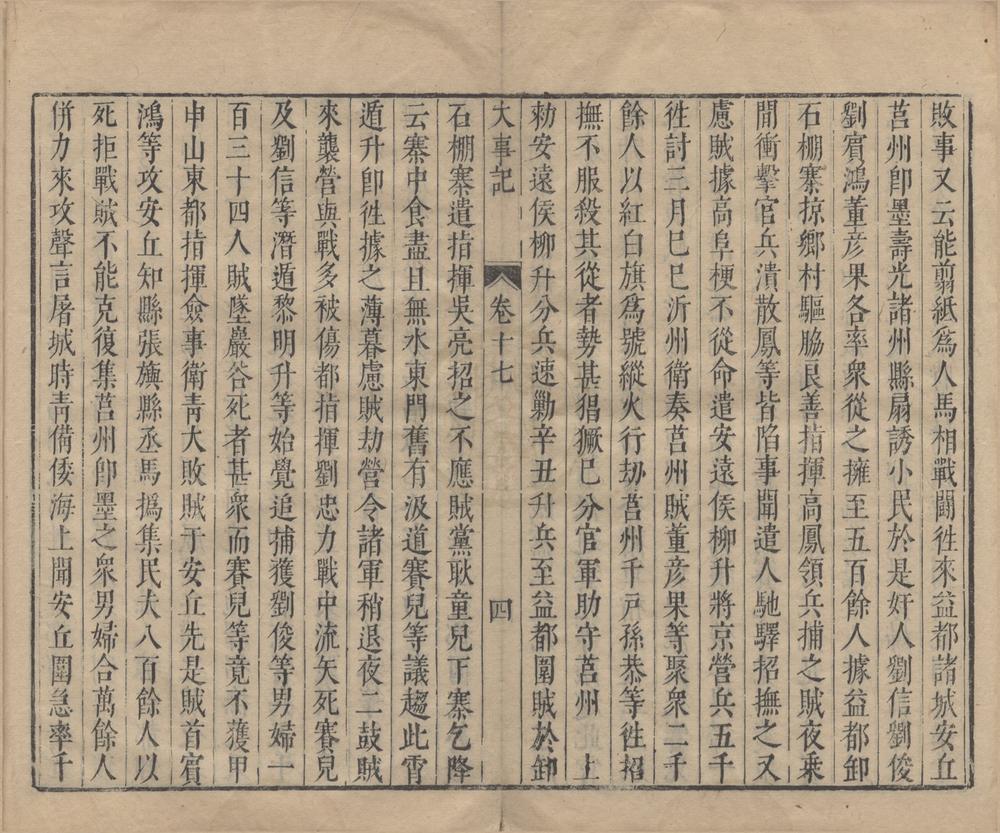 敗事又云能剪紙爲人馬相戰鬬徃來益都諸城安丘
莒州卽墨壽光諸州縣扇誘小民於是奸人劉信劉俊
劉賔鴻董彦果各率衆從之擁至五百餘人據益都卸
石棚寨掠鄉村驅脇良善指揮高鳳領兵捕之賊夜乘
間衝擊官兵潰散鳳等皆陷事聞遣人馳驛招撫之又
慮賊據高阜梗不從命遣安遠侯柳升將京營兵五千
徃討三月巳巳沂州衛奏莒州賊董彦果等聚衆二千
餘人以紅白旗爲號縱火行刼莒州千戸孫恭等徃招
撫不服殺其從者勢甚猖獗巳分官軍助守莒州　上
勑安遠侯柳升分兵速勦辛丑升兵至益都圍賊於卸
大事記　卷十七　四
石棚寨遣指揮吳亮招之不應賊黨耿童兒下寨乞降
云寨中食盡且無水東門舊有汲道賽兒等議趨此宵
遁升卽徃據之薄暮慮賊劫營令諸軍稍退夜二鼓賊
來襲營與戰多被傷都指揮劉忠力戰中流矢死賽兒
及劉信等潛遁黎明升等始覺追捕獲劉俊等男婦一
百三十四人賊墜巖谷死者甚衆而賽兒等竟不獲甲
申山東都指揮僉事衛青大敗賊于安丘先是賊首賔
鴻等攻安丘知縣張旟縣丞馬撝集民夫八百餘人以
死拒戰賊不能克復集莒州卽墨之衆男婦合萬餘人
併力來攻聲言屠城時青備倭海上聞安丘圍急率千